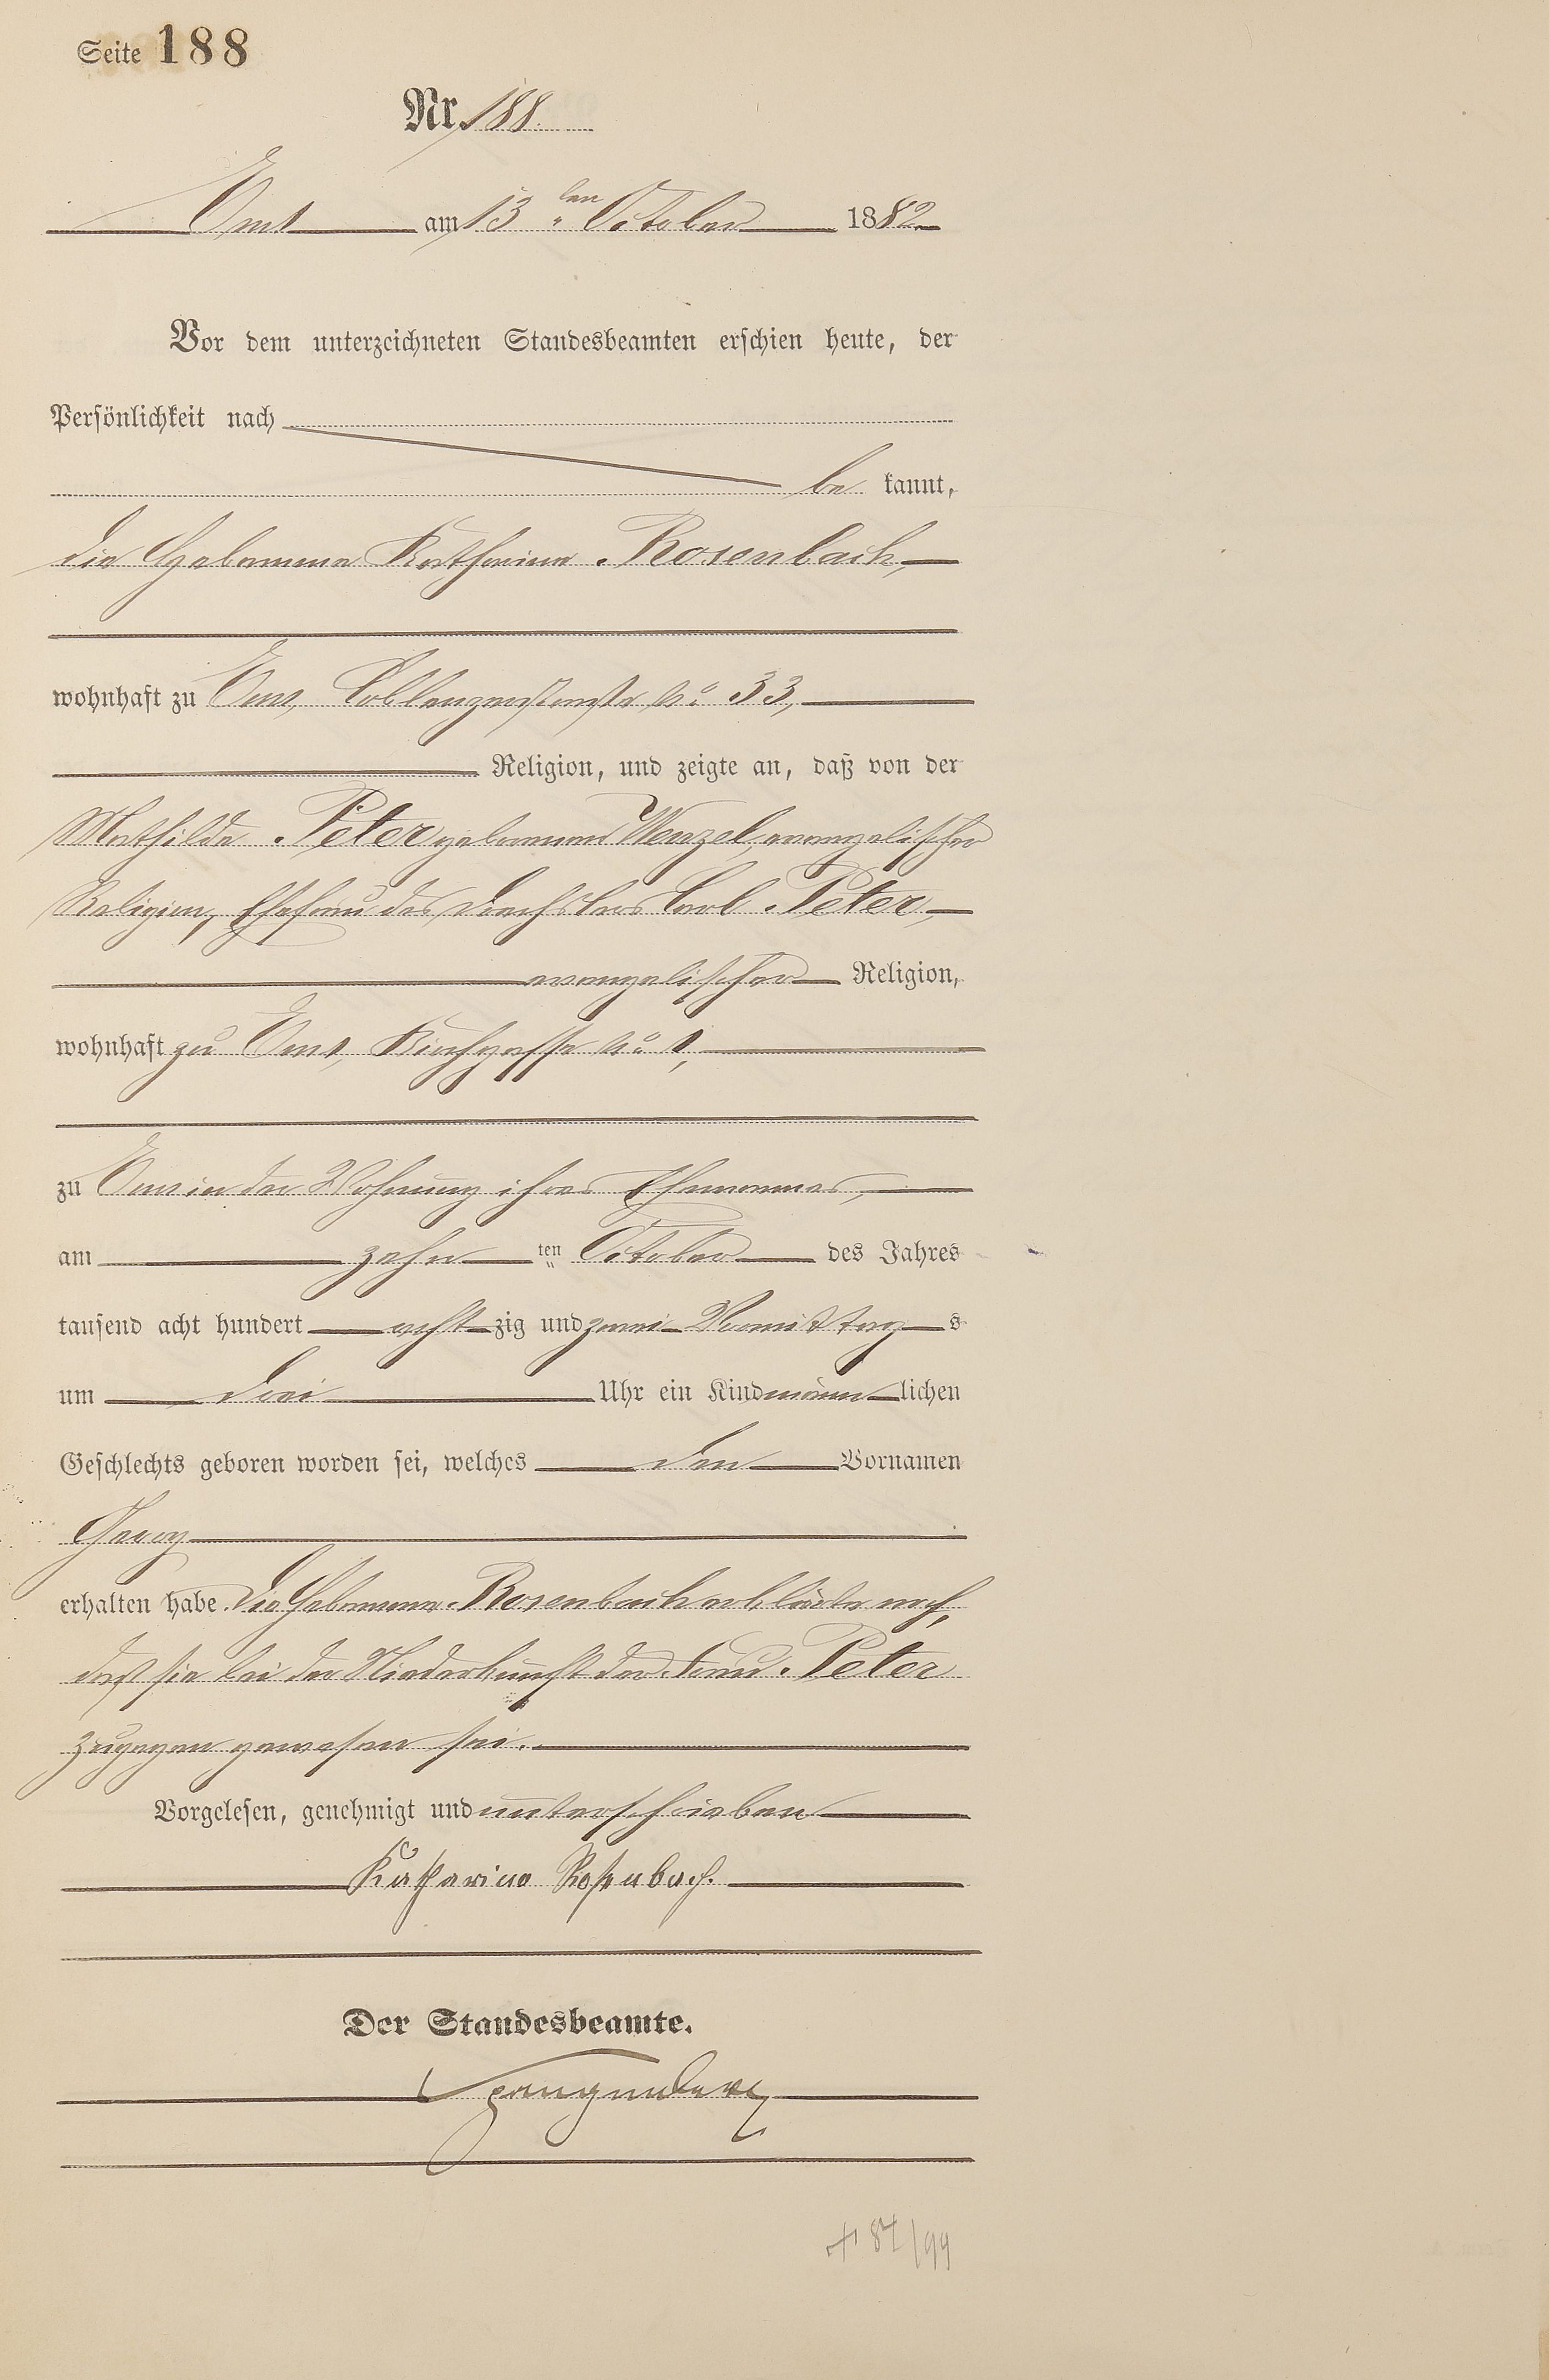 Seite 188
Nr. 188.
Ems am 13ten October 1882
Vor dem unterzeichneten Standesbeamten erschien heute, der
Persönlichkeit nach
be kannt,
die Hebamme Katharina Rosenbach,
wohnhaft zu Ems, Coblenzerstraße No 33,
Religion, und zeigte an, daß von der
Mathilde Peter geborenen Wenzel, evangelischer
Religion, Ehefrau des Drechslers Carl Peter,
evangelischer Religion,
wohnhaft zu Ems, Kirchgasse No 1,
zu Ems in der Wohnung ihres Ehemannes,
am zehn ten October des Jahres
tausend acht hundert acht zig und zwei Vormittag s
um drei Uhr ein Kind männ lichen
Geschlechts geboren worden sei, welches den Vornamen
Georg
erhalten habe. Die Hebamme Rosenbach erklärte noch,
daß sie bei der Niederkunft der Frau Peter
zugegen gewesen sei.
Vorgelesen, genehmigt und unterschrieben
Katharina Rosenbach.
Der Standesbeamte.
Spangenberg
+ 87/99